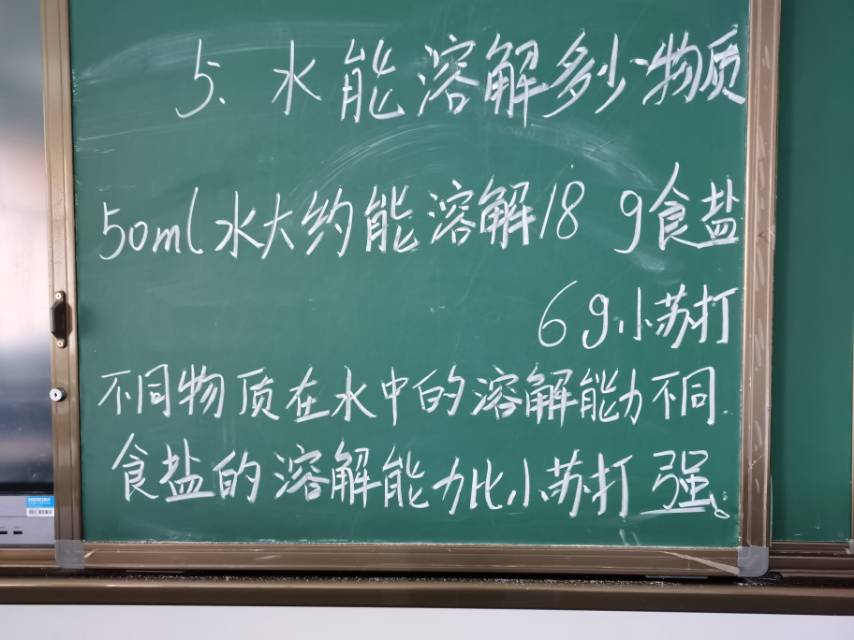 5. 水能溶解多少物质
50ml水大约能溶解18 g食盐
6g小苏打
不同物质在水中的溶解能力不同.
食盐的溶解能力比小苏打强。